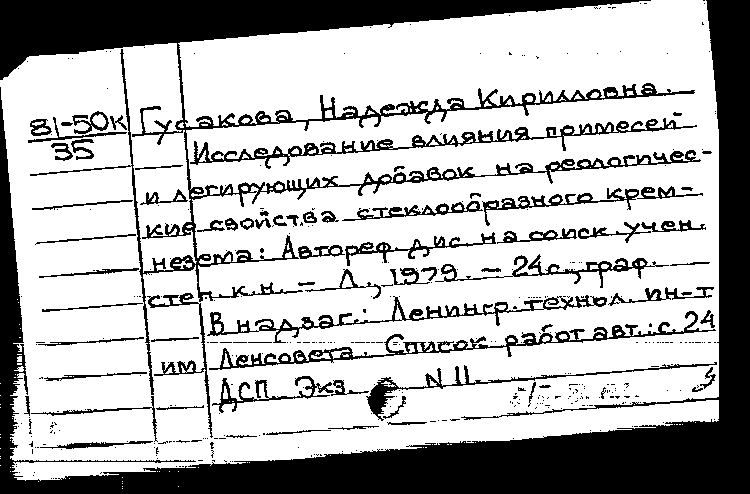 81-50к Гусакова, Надежда Кирилловна.
35
Исследование влияния примесей
и легирующих добавок на реологичес-
кие свойства стеклообразного крем-
незема: Автореф. дис. на соиск. учен.
степ. к.н. – Л., 1979. – 24 с., граф.
В надзаг.: Ленингр. технол. ин-т
им. Ленсовета. Список работ авт.: с. 24
ДСП. Экз. N 11.